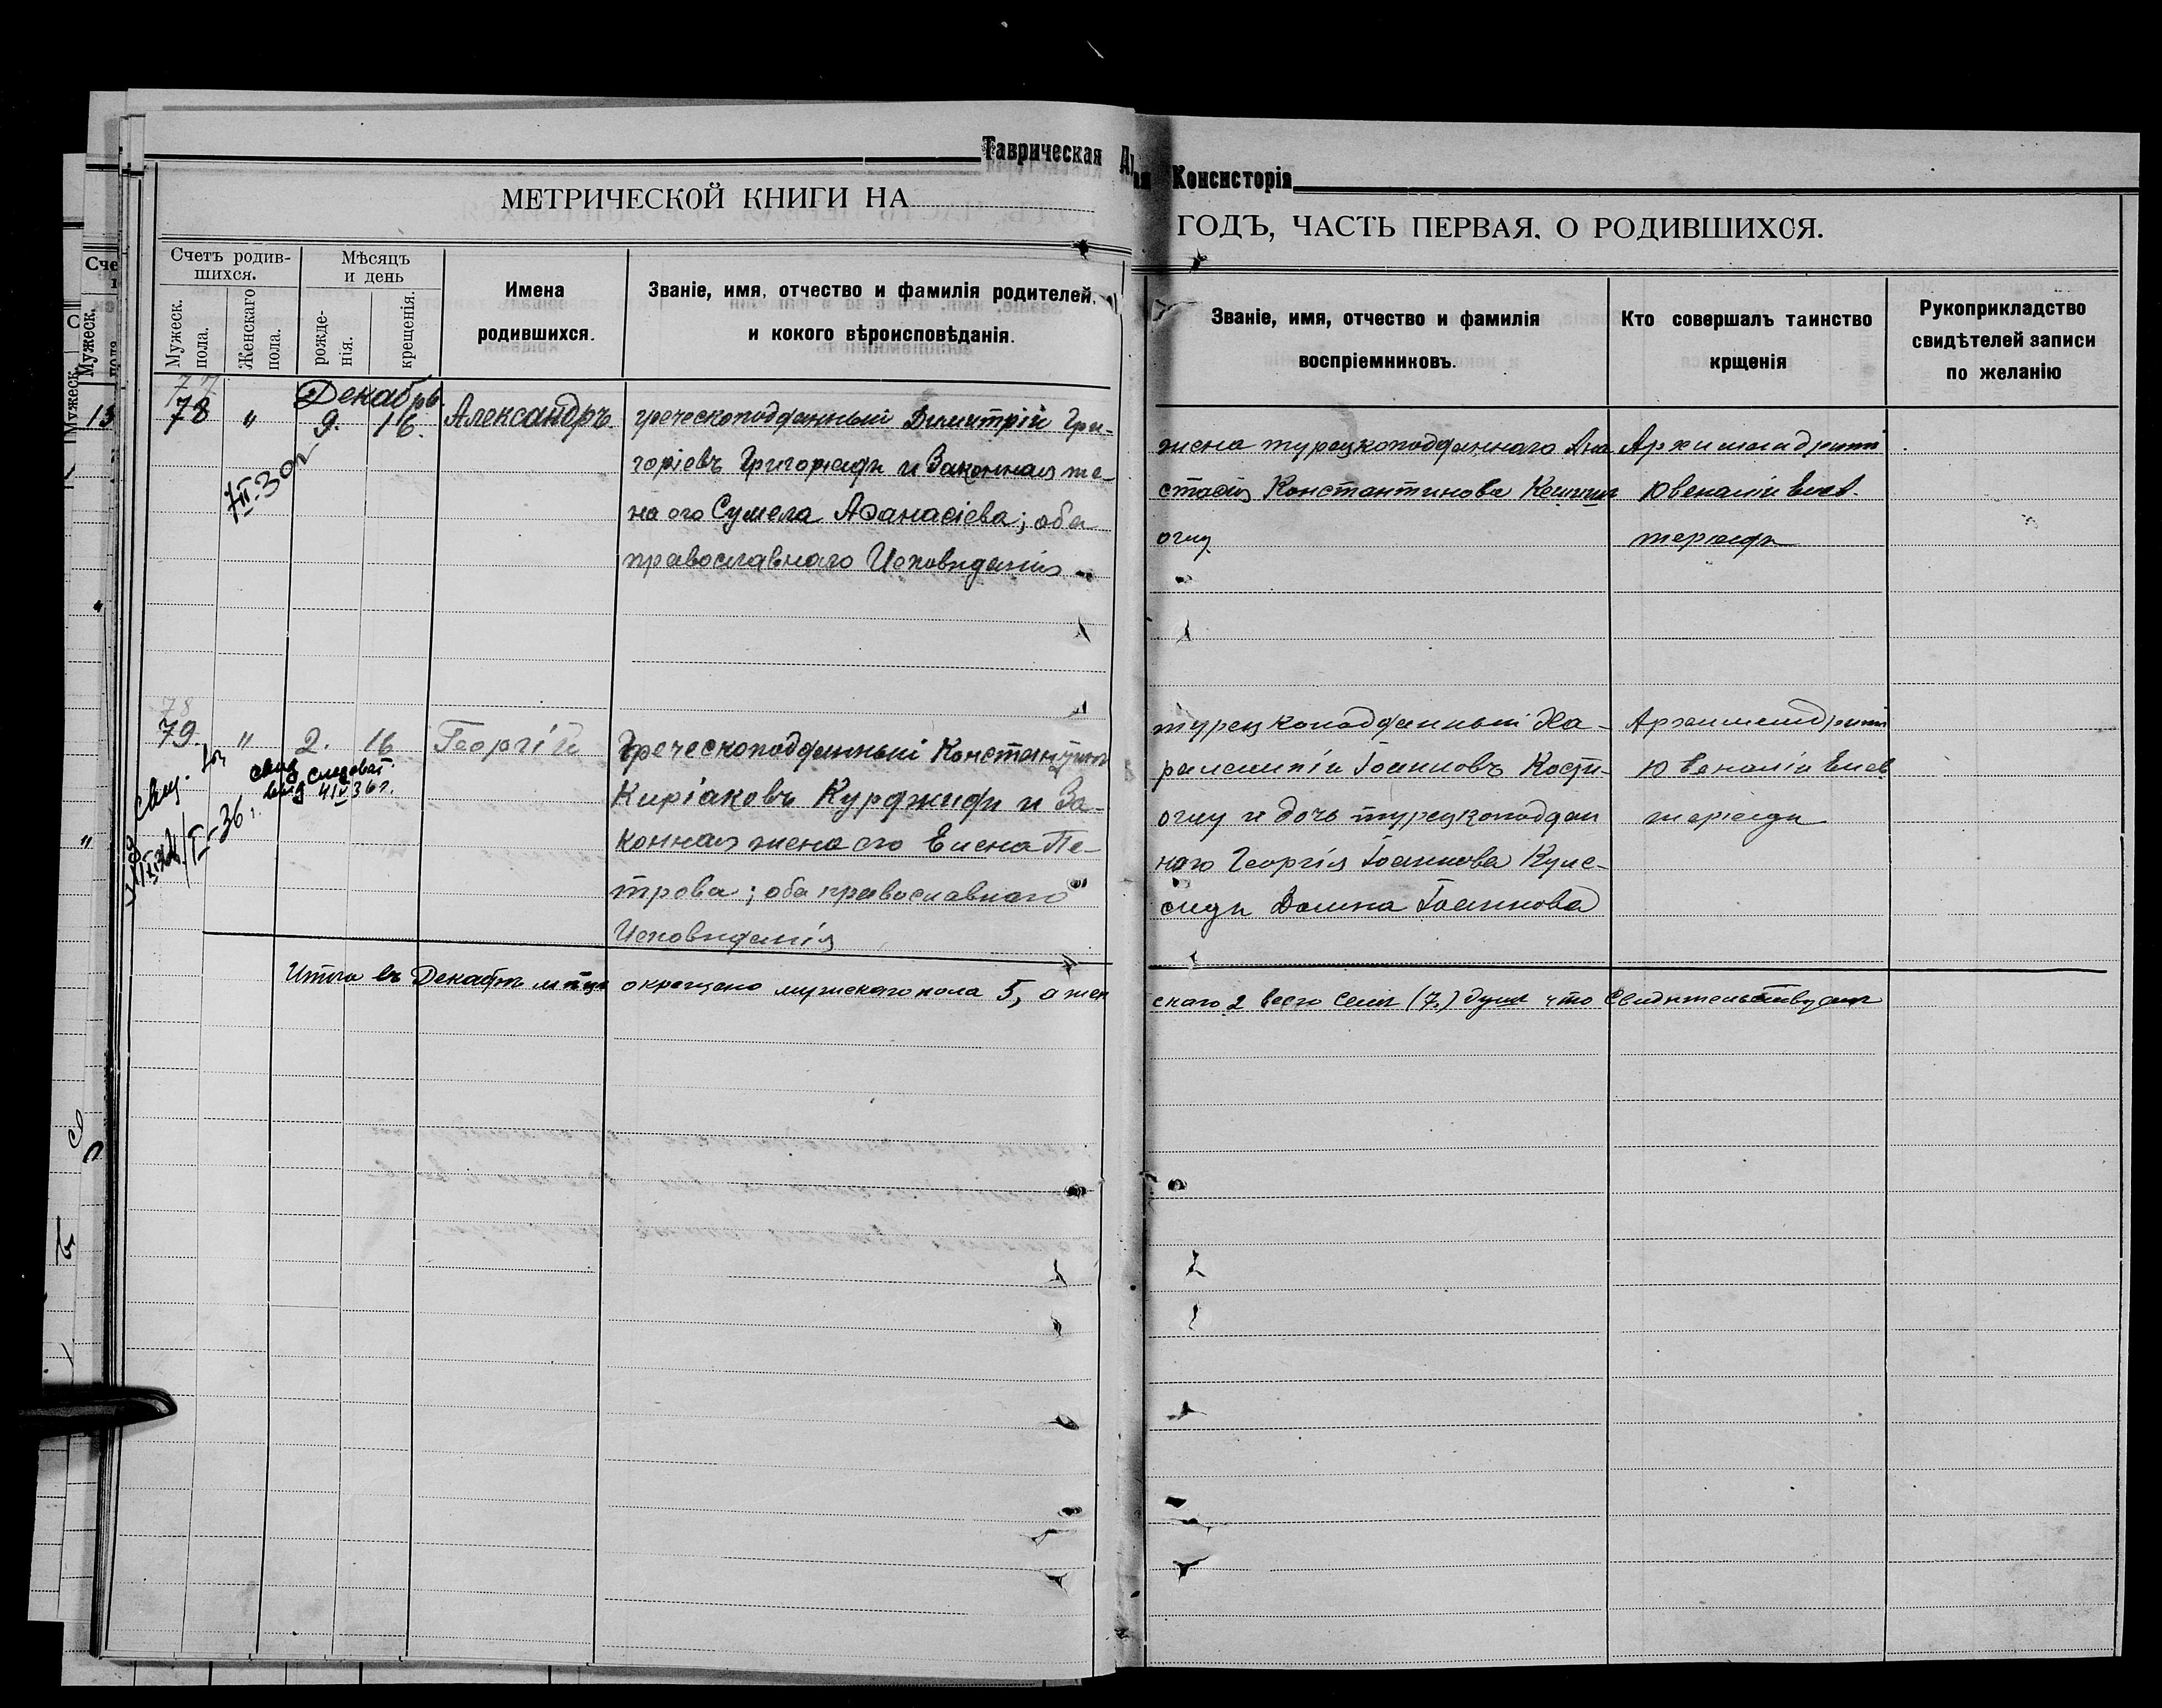 Таврическая
Консисторія
МЕТРИЧЕСКОЙ КНИГИ НА
ГОДЪ, ЧАСТЬ ПЕРВАЯ, О РОДИВШИХСЯ.
Счетъ родив-
шихся.
Мужеск.
пола.
Женскаго
пола.
Мѣсяцъ
и день
рожде-
нія.
крещенія.
Имена
родившихся.
Званіе, имя, отчество и фамилія родителей,
и кокого вѣроисповѣданія.
Званіе, имя, отчество и фамилія
воспріемниковъ.
Кто совершалъ таинство
крщенія
Рукоприкладство
свидѣтелей записи
по желанію
77
Декабрь.
78 " 9. 16. Александръ.
7/II-30г
греческоподданный Димитрій Гри-
горіевъ Григоріади и Законная же-
на его Сумела Аѳанасіева; оба
православнаго Исповѣданія
жена турецкоподданнаго Ана
стасія Константинова
оглу
Архимандритъ
Ювеналій Елев.
теріади
78
79 " 2. 16 Георгій
Греческоподданный Константинъ
Киріаковъ Курджиди и За-
конная жена его Елена Пе-
трова; оба православнаго
Исповѣданія
турецкоподданный Ха-
ралампій Іоанновъ Кости-
оглу и дочь турецкоподдан
наго Георгія Іоаннова
Іоаннова
Архимандритъ
Ювеналій Елев
теріади
Итого въ Декабрѣ м-цѣ окрещено мужского пола 5, а жен
скаго 2 всего семь (7) душъ что Свидѣтельствуемъ